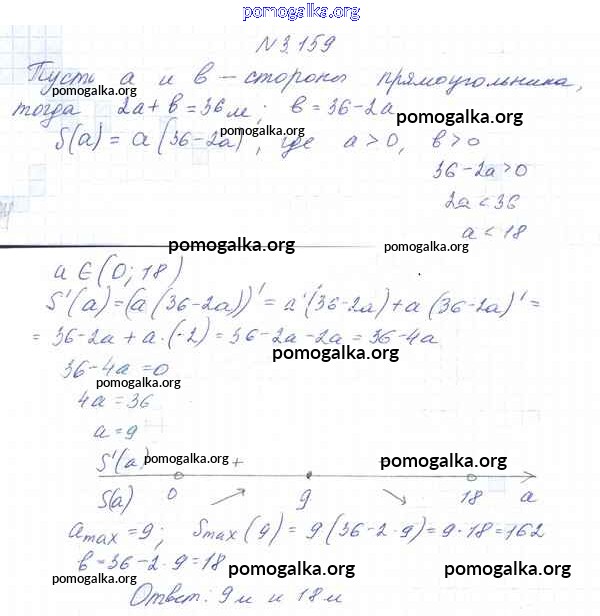 pomogalka.org
N 3.159
Пусть a и b – стороны прямоугольника,
pomogalka.org
pomogalka.org
тогда 2a + b = 36 м; b = 36 - 2a
S(a) = a (36 - 2a), где a > 0, b > 0
pomogalka.org
36 - 2a > 0
2a < 36
a < 18
pomogalka.org
pomogalka.org
a ∈ (0; 18)
S'(a) = (a (36 - 2a))' = a'(36 - 2a) + a (36 - 2a)' =
= 36 - 2a + a · (-2) = 36 - 2a - 2a = 36 - 4a
pomogalka.org
36 - 4a = 0
pomogalka.org
4a = 36
a = 9
S'(a) pomogalka.org + pomogalka.org
S(a) 0 9 18 a
a max = 9; S max (9) = 9 (36 - 2 · 9) = 9 · 18 = 162
pomogalka.org
b = 36 - 2 · 9 = 18
pomogalka.org
pomogalka.org
Ответ: 9 м и 18 м